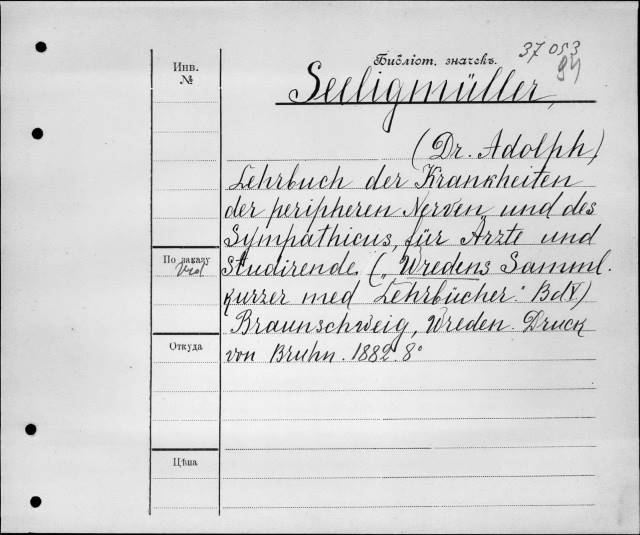 37 053
Библіот. значекъ.
84
Инв.
№
Seeligmüller,
(Dr. Adolph)
Lehrbuch der Krankheiten
der peripheren Nerven und des
Sympathicus, für Ärzte und
По заказу
Studirende. („Wredens Samml.
kurzer med Lehrbücher." Bd V)
Braunschweig, Wreden. Druck
Откуда
von Bruhn. 1882. 8°
Цѣна